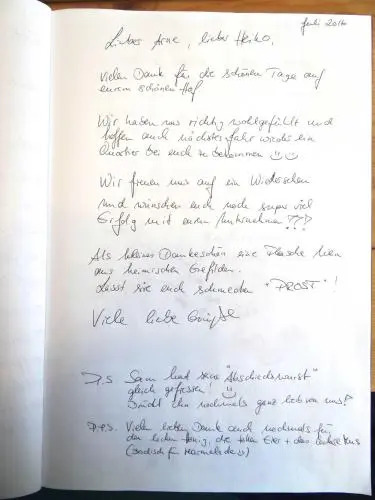 Juli 2016
Liebes Arne, lieber Heiko,
Vielen Dank für die schönen Tage auf
eurem schönen Hof
Wir haben uns richtig wohlgefühlt und
hoffen auch nächstes Jahr wieder ein
Quartier bei euch zu bekommen ☺☺
Wir freuen uns auf ein Wiedersehen
und wünschen euch noch super viel
Erfolg mit eurem Unternehmen !!!
Als kleines Dankeschön eine Flasche Wein
aus heimischen Gefilden.
Lasst sie euch schmecken "PROST"!
Viele liebe Grüße
P.S. Sam hat seine "Abschiedswurst"
gleich gefressen! ☺
Drückt ihn nochmals ganz lieb von uns!
P.P.S. Vielen lieben Dank auch nochmals für
den leckeren Honig, die tollen Eier + das leckere Mus
(Badisch für Marmelade ☺)